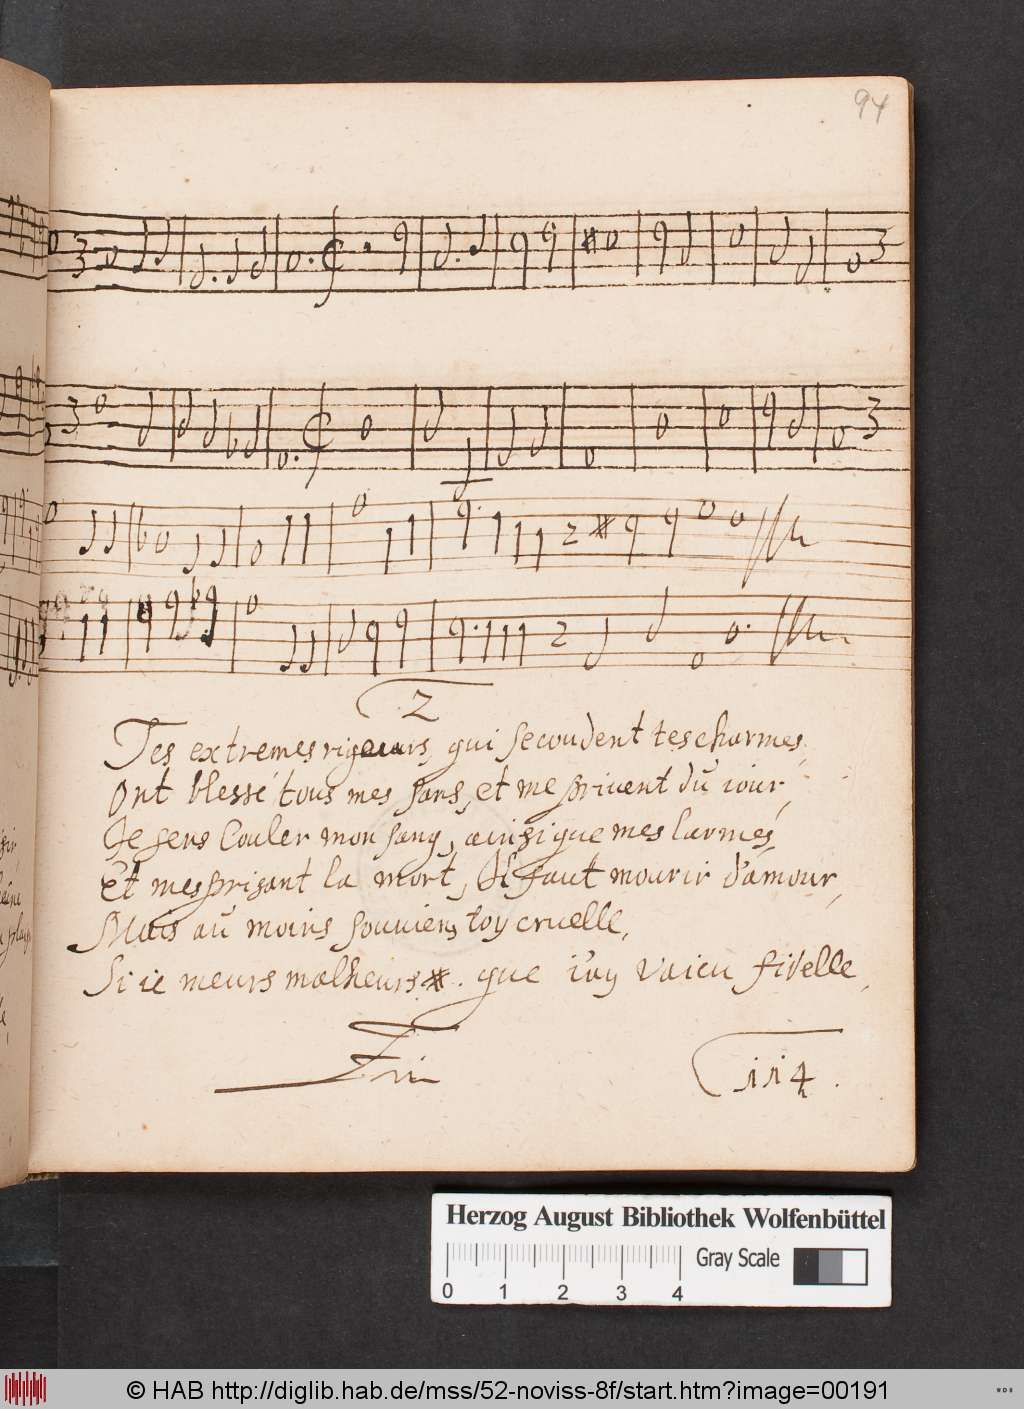 94
2
Tes extremes rigeurs, qui secoudent tes charmes,
Ont blessé tous mes sans, et me privent du iour,
Je sens Couler mon sang, ainsi que mes larmes,
Et mesprisant la mort, Il faut mourir d'amour,
Mais au moins souviens toy cruelle,
Si ie meurs malheurs que i'ay vaicu fidelle,
Fin
114.
Herzog August Bibliothek Wolfenbüttel
Gray Scale
0 1 2 3 4
© HAB http://diglib.hab.de/mss/52-noviss-8f/start.htm?image=00191